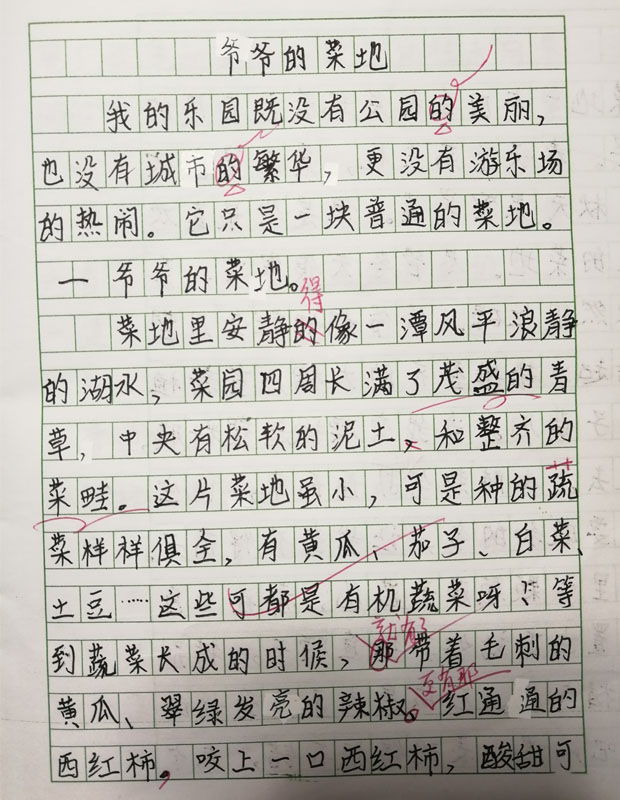 爷爷的菜地
我的乐园既没有公园的美丽，
也没有城市的繁华，更没有游乐场
的热闹。它只是一块普通的菜地。
一爷爷的菜地。
得
菜地里安静的像一潭风平浪静
的湖水，菜园四周长满了茂盛的青
草，中央有松软的泥土、和整齐的
菜畦。这片菜地虽小，可是种的蔬
菜样样俱全，有黄瓜、茄子、白菜、
土豆……这些可都是有机蔬菜呀！等
就有了
到蔬菜长成的时候，那带着毛刺的
更有那
黄瓜、翠绿发亮的辣椒。红通通的
西红柿，咬上一口西红柿，酸甜可